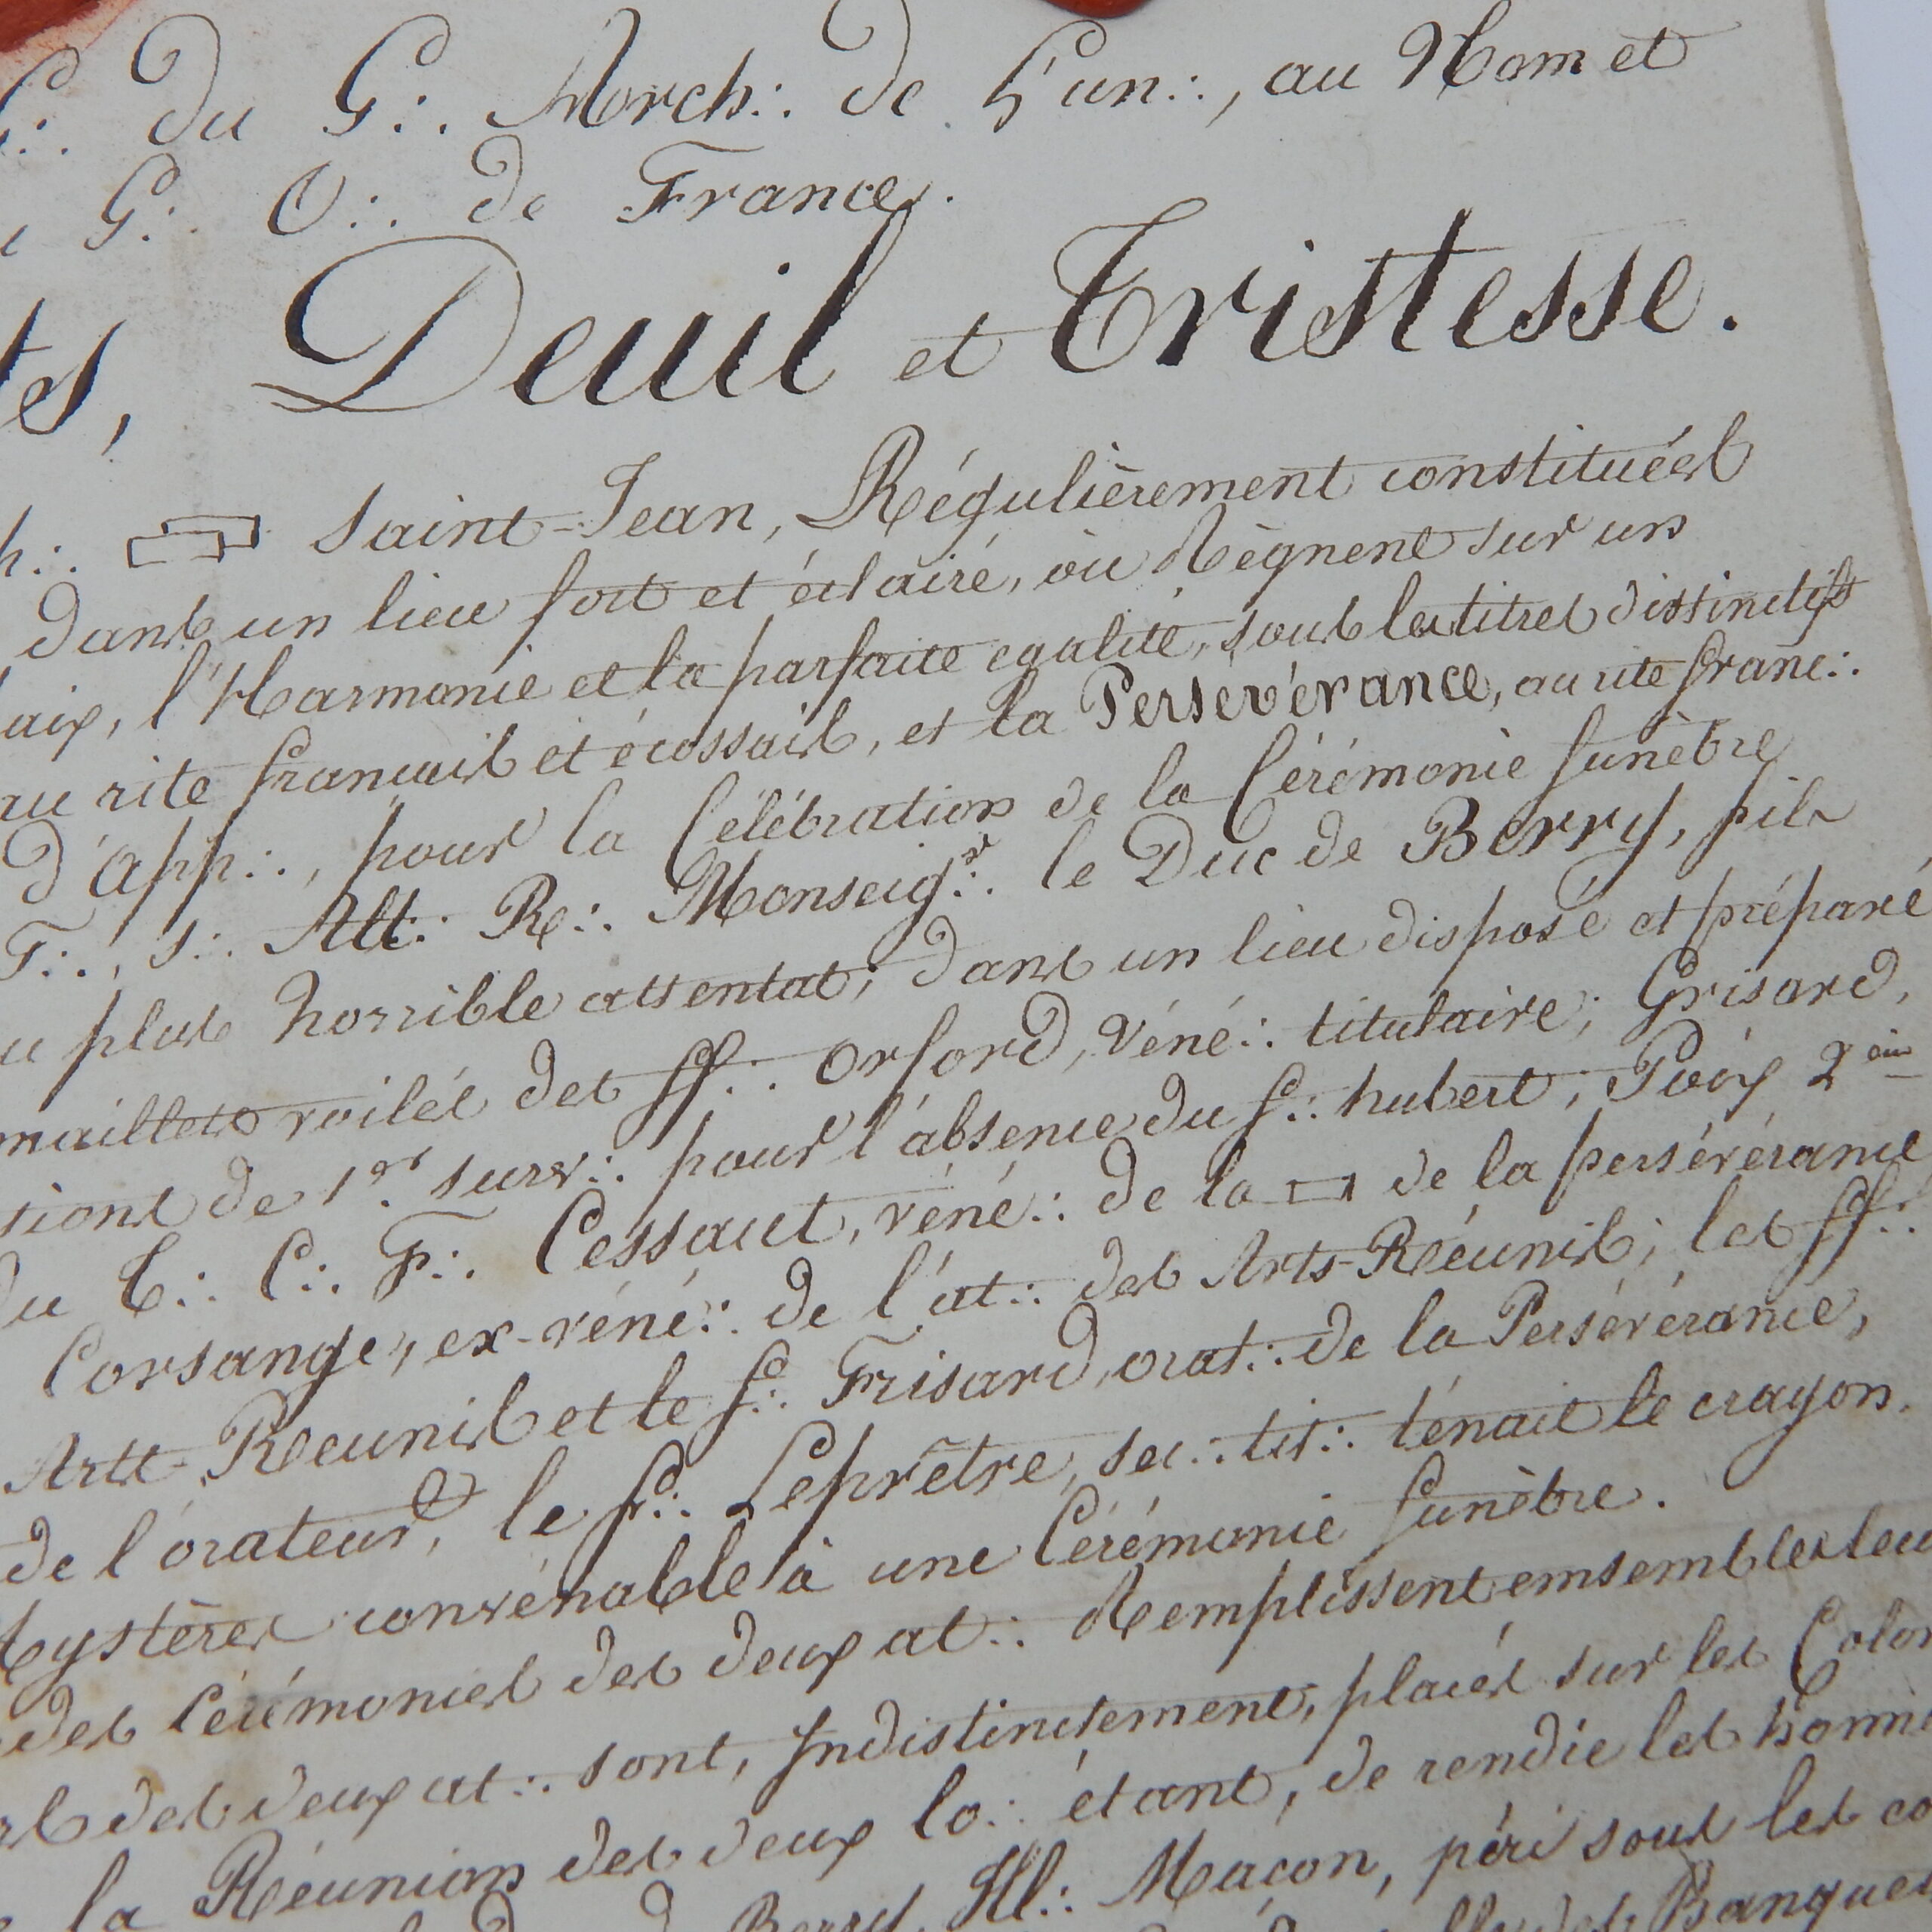 du G∴ Arch∴ de L'un∴, au Nom et
G∴ O∴ de France.
ts, Deuil et Tristesse.
Saint-Jean, Régulièrement constituées
dans un lieu fort et éclairé, où Règnent sur un
aix, l'Harmonie et la parfaite egalité, sous les titres distinctifs
au rite français et écossais, et la Persévérance, au rite franc∴
d'App∴, pour la Célébration de la Cérémonie funèbre
F∴, S∴ Alt∴ R∴ Monseigr∴ le Duc de Berry, fils
u plus horrible attentat; dans un lieu disposé et préparé
maillets voilés des ff∴ Orford, véné∴ titulaire; Grisard,
tions de 1er surv∴ pour l'absence du f∴ hubert; 2eme
du T∴ C∴ F∴ Cessaut, véné∴ de la ▭ de la persévérance
Corsange, ex-véné∴ de l'at∴ des Arts-Réunis; les ff∴
Arts-Réunis et le f∴ Frisard, orat∴ de la Persévérance,
de l'orateur, le f∴ Leprêtre, sec∴ tit∴ ténait le crayon.
Mystères convénable à une Cérémonie funèbre.
des Cérémonies des deux at∴ Remplissent emsembles leu
des deux at∴ sont, Indistinctement, placés sur les Colon
la Réunion des deux lo∴ étant, de rendre les honn
Berry, Ill∴ Maçon, péri sous les co
des Banquet